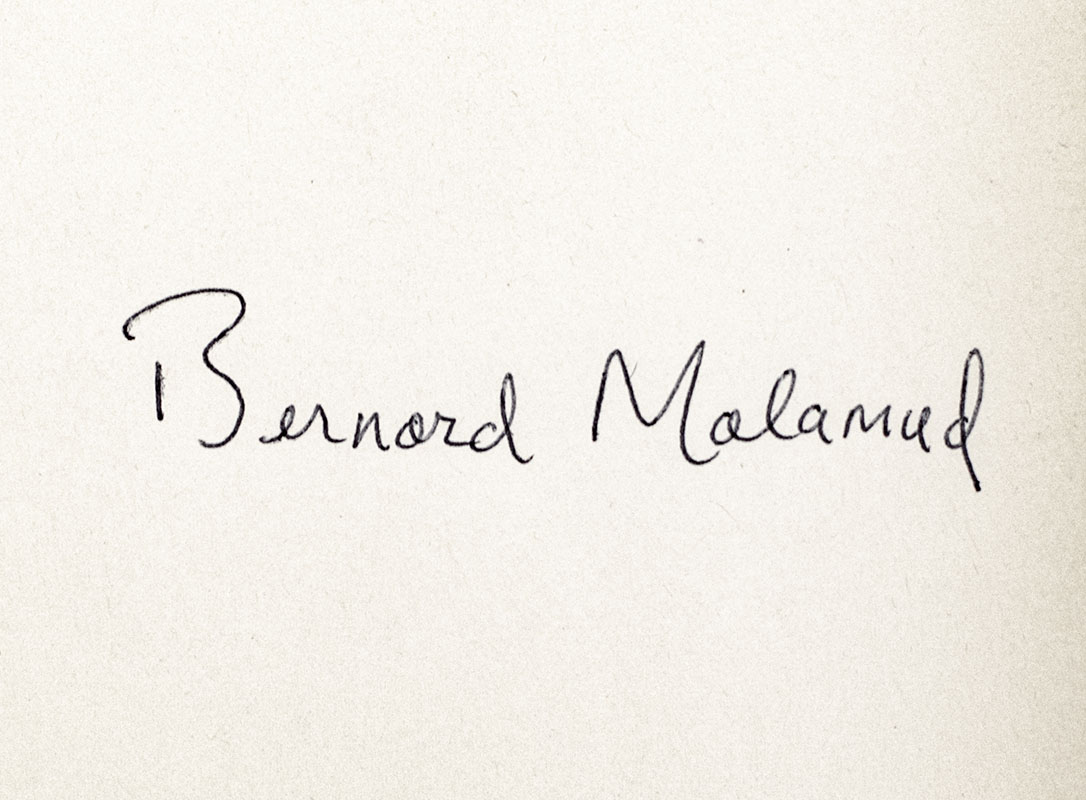 Bernard Malamud